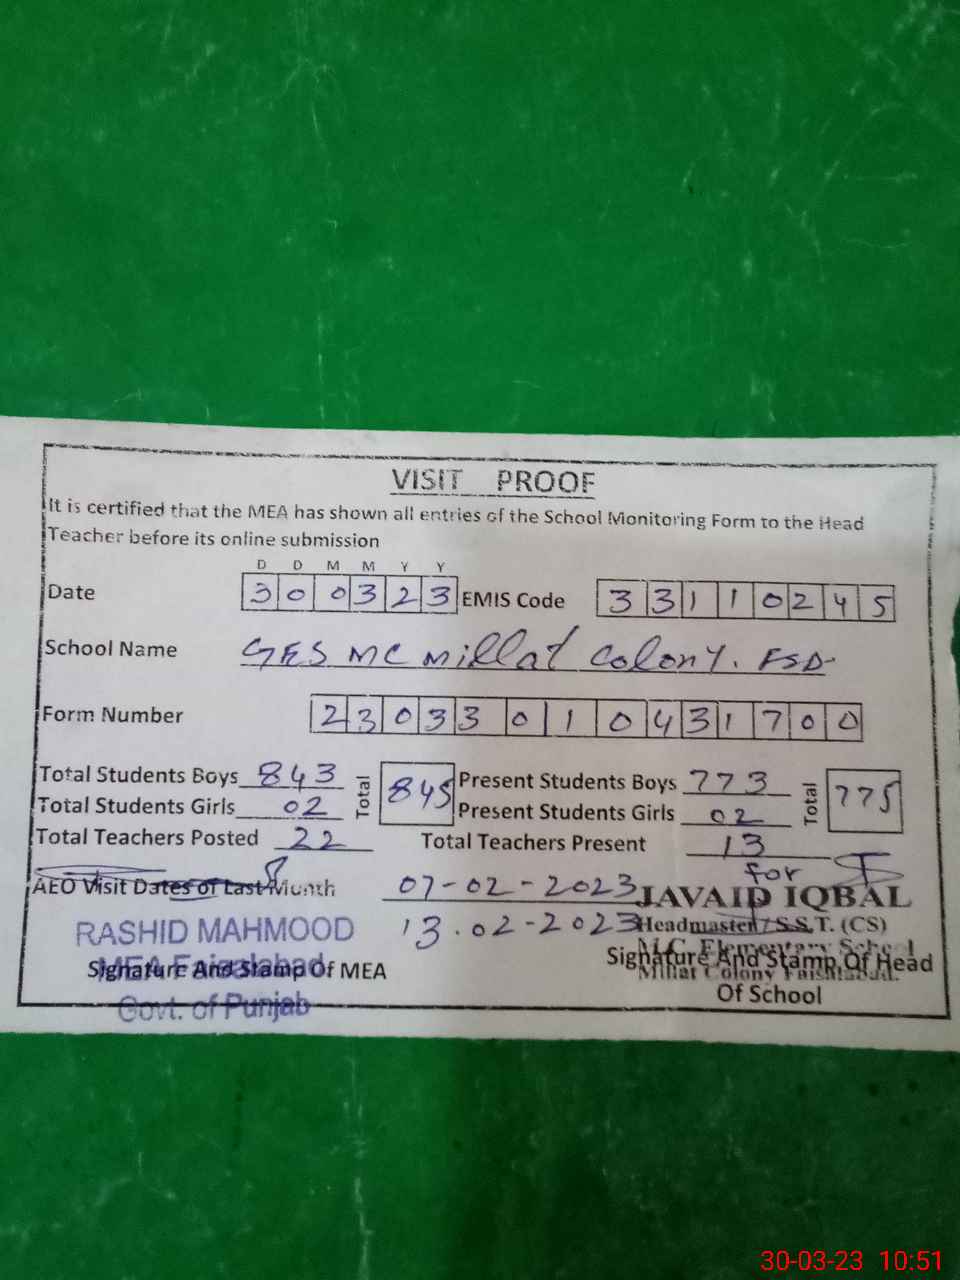 VISIT PROOF
It is certified that the MEA has shown all entries of the School Monitoring Form to the Head
Teacher before its online submission
D D M M Y Y
Date 3 0 0 3 2 3 EMIS Code 3 3 1 1 0 2 4 5
School Name GES MC Millat Colony. FSD
Form Number 2 3 0 3 3 0 1 0 4 3 1 7 0 0
Total Students Boys 843 Total 845 Present Students Boys 773 Total 775
Total Students Girls 02 Present Students Girls 02
Total Teachers Posted 22 Total Teachers Present 13
for
AEO Visit Dates of Last Month 07-02-2023 JAVAID IQBAL
RASHID MAHMOOD 13.02-2023 Headmaster / S.S.T. (CS)
M.C. Elementary School
MEA Faisalabad Millat Colony Faisalabad.
Signature And Stamp Of MEA Signature And Stamp Of Head
Of School
Govt. of Punjab
30-03-23 10:51